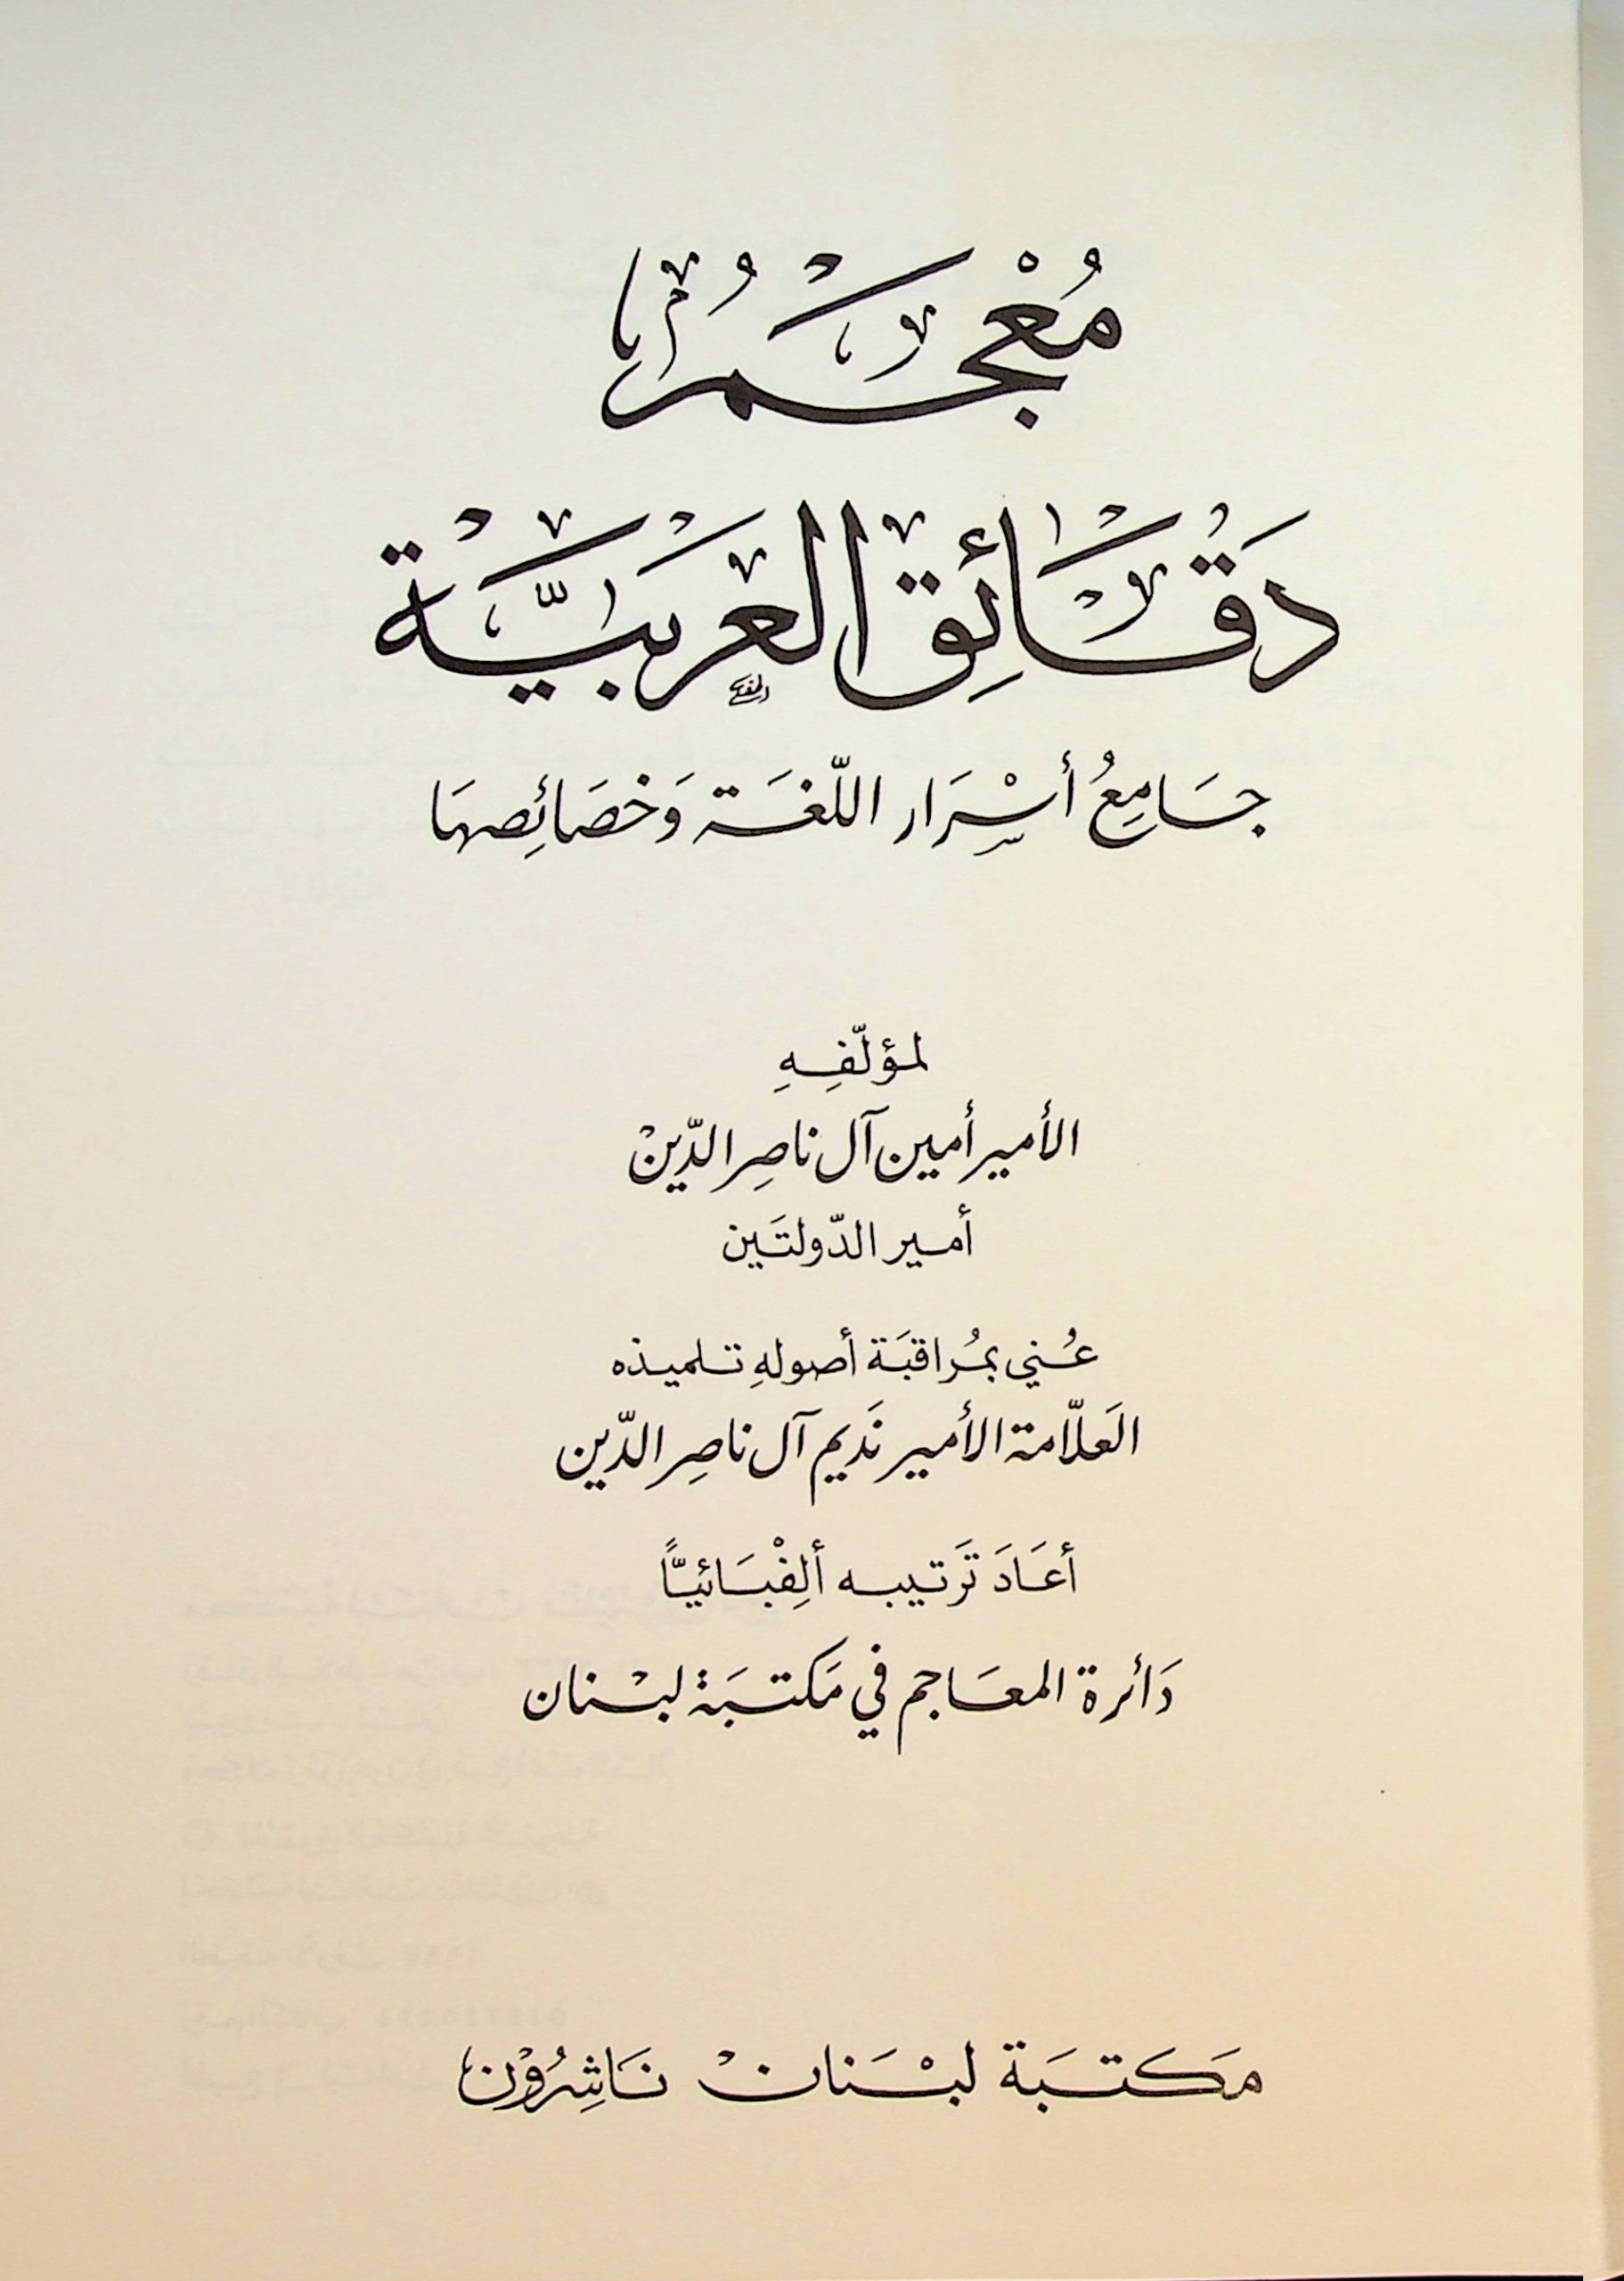 مُعْجَمُ
دَقَائِق العَرَبيَّة
جَامِعُ أسْرَار اللّغَة وَخصَائِصهَا
لمؤلّفِهِ
الأمير أمين آل ناصِر الدّيْن
أمير الدّولتَين
عُني بمُراقبَة أصولهِ تلميذه
العَلاّمة الأمير نَديم آل ناصِر الدّين
أعَادَ تَرتيبه ألِفْبَائيًّا
دَائرة المعَاجم في مَكتبَة لبْنان
مَكتبَة لبْنَان نَاشِرُوْن